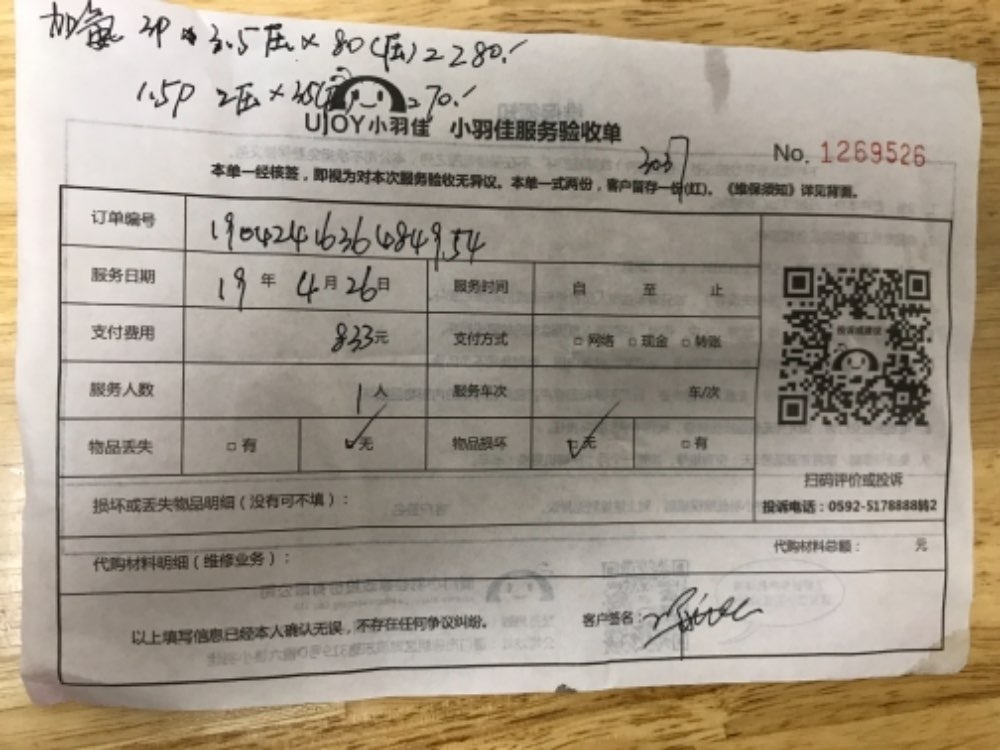 加氟 3P × 3.5压 × 80(压)=280.
1.5P 2压 × 35(压)=70.
UJOY小羽佳 小羽佳服务验收单
3037
No. 1269526
本单一经核签，即视为对本次服务验收无异议。本单一式两份，客户留存一份(红)。《维保须知》详见背面。
订单编号 1904241636484954
服务日期 19 年 4 月 26 日 服务时间 自 至 止
支付费用 833元 支付方式 □ 网络 □ 现金 □ 转账
服务人数 1 人 服务车次 车/次
物品丢失 □ 有 ☑ 无 物品损坏 ☑ 无 □ 有
投诉或建议
扫码评价或投诉
投诉电话：0592-5178888转2
损坏或丢失物品明细（没有可不填）：
代购材料明细（维修业务）： 代购材料总额： 元
以上填写信息已经本人确认无误，不存在任何争议纠纷。 客户签名：